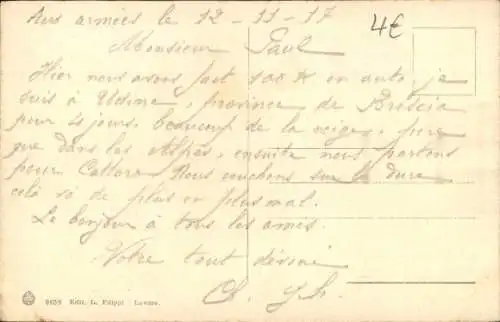 Aux armées le 12-11-17
4€
Monsieur Paul
Hier nous avons fait 100 K en auto, je
suis à Udine, province de Brescia
pour jours, beaucoup de la neige, pire
que dans les Alpes, ensuite nous partons
pour Nous couchons sur la dure
celà va de plus en plus mal.
Le bonjour à tous les amis.
Votre tout dévoué
Ch.
9459 Edit. L. Filippi - Lovere.